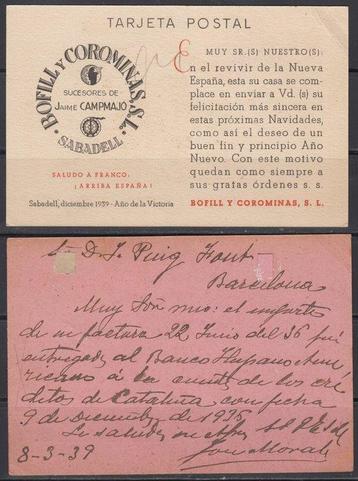 TARJETA POSTAL
BOFILL Y COROMINAS, S.L.
SUCESORES DE
JAIME CAMPMAJÓ
SABADELL
MUY SR.(S) NUESTRO(S):
en el revivir de la Nueva
España, esta su casa se com-
place en enviar a Vd. (s) su
felicitación más sincera en
estas próximas Navidades,
como así el deseo de un
buen fin y principio Año
Nuevo. Con este motivo
quedan como siempre a
sus gratas órdenes s. s.
SALUDO A FRANCO:
¡ARRIBA ESPAÑA!
Sabadell, diciembre 1939 - Año de la Victoria
BOFILL Y COROMINAS, S. L.
D. J. Puig Font
Barcelona
Muy Sñr mio: el importe
de su factura 22 Junio del 36 fué
entregado al Banco Hispano Ame
ricano á la cuenta de los cré
ditos de Cataluña con fecha
9 de diciembre de 1936
Le saluda su
José Morale
8-3-39